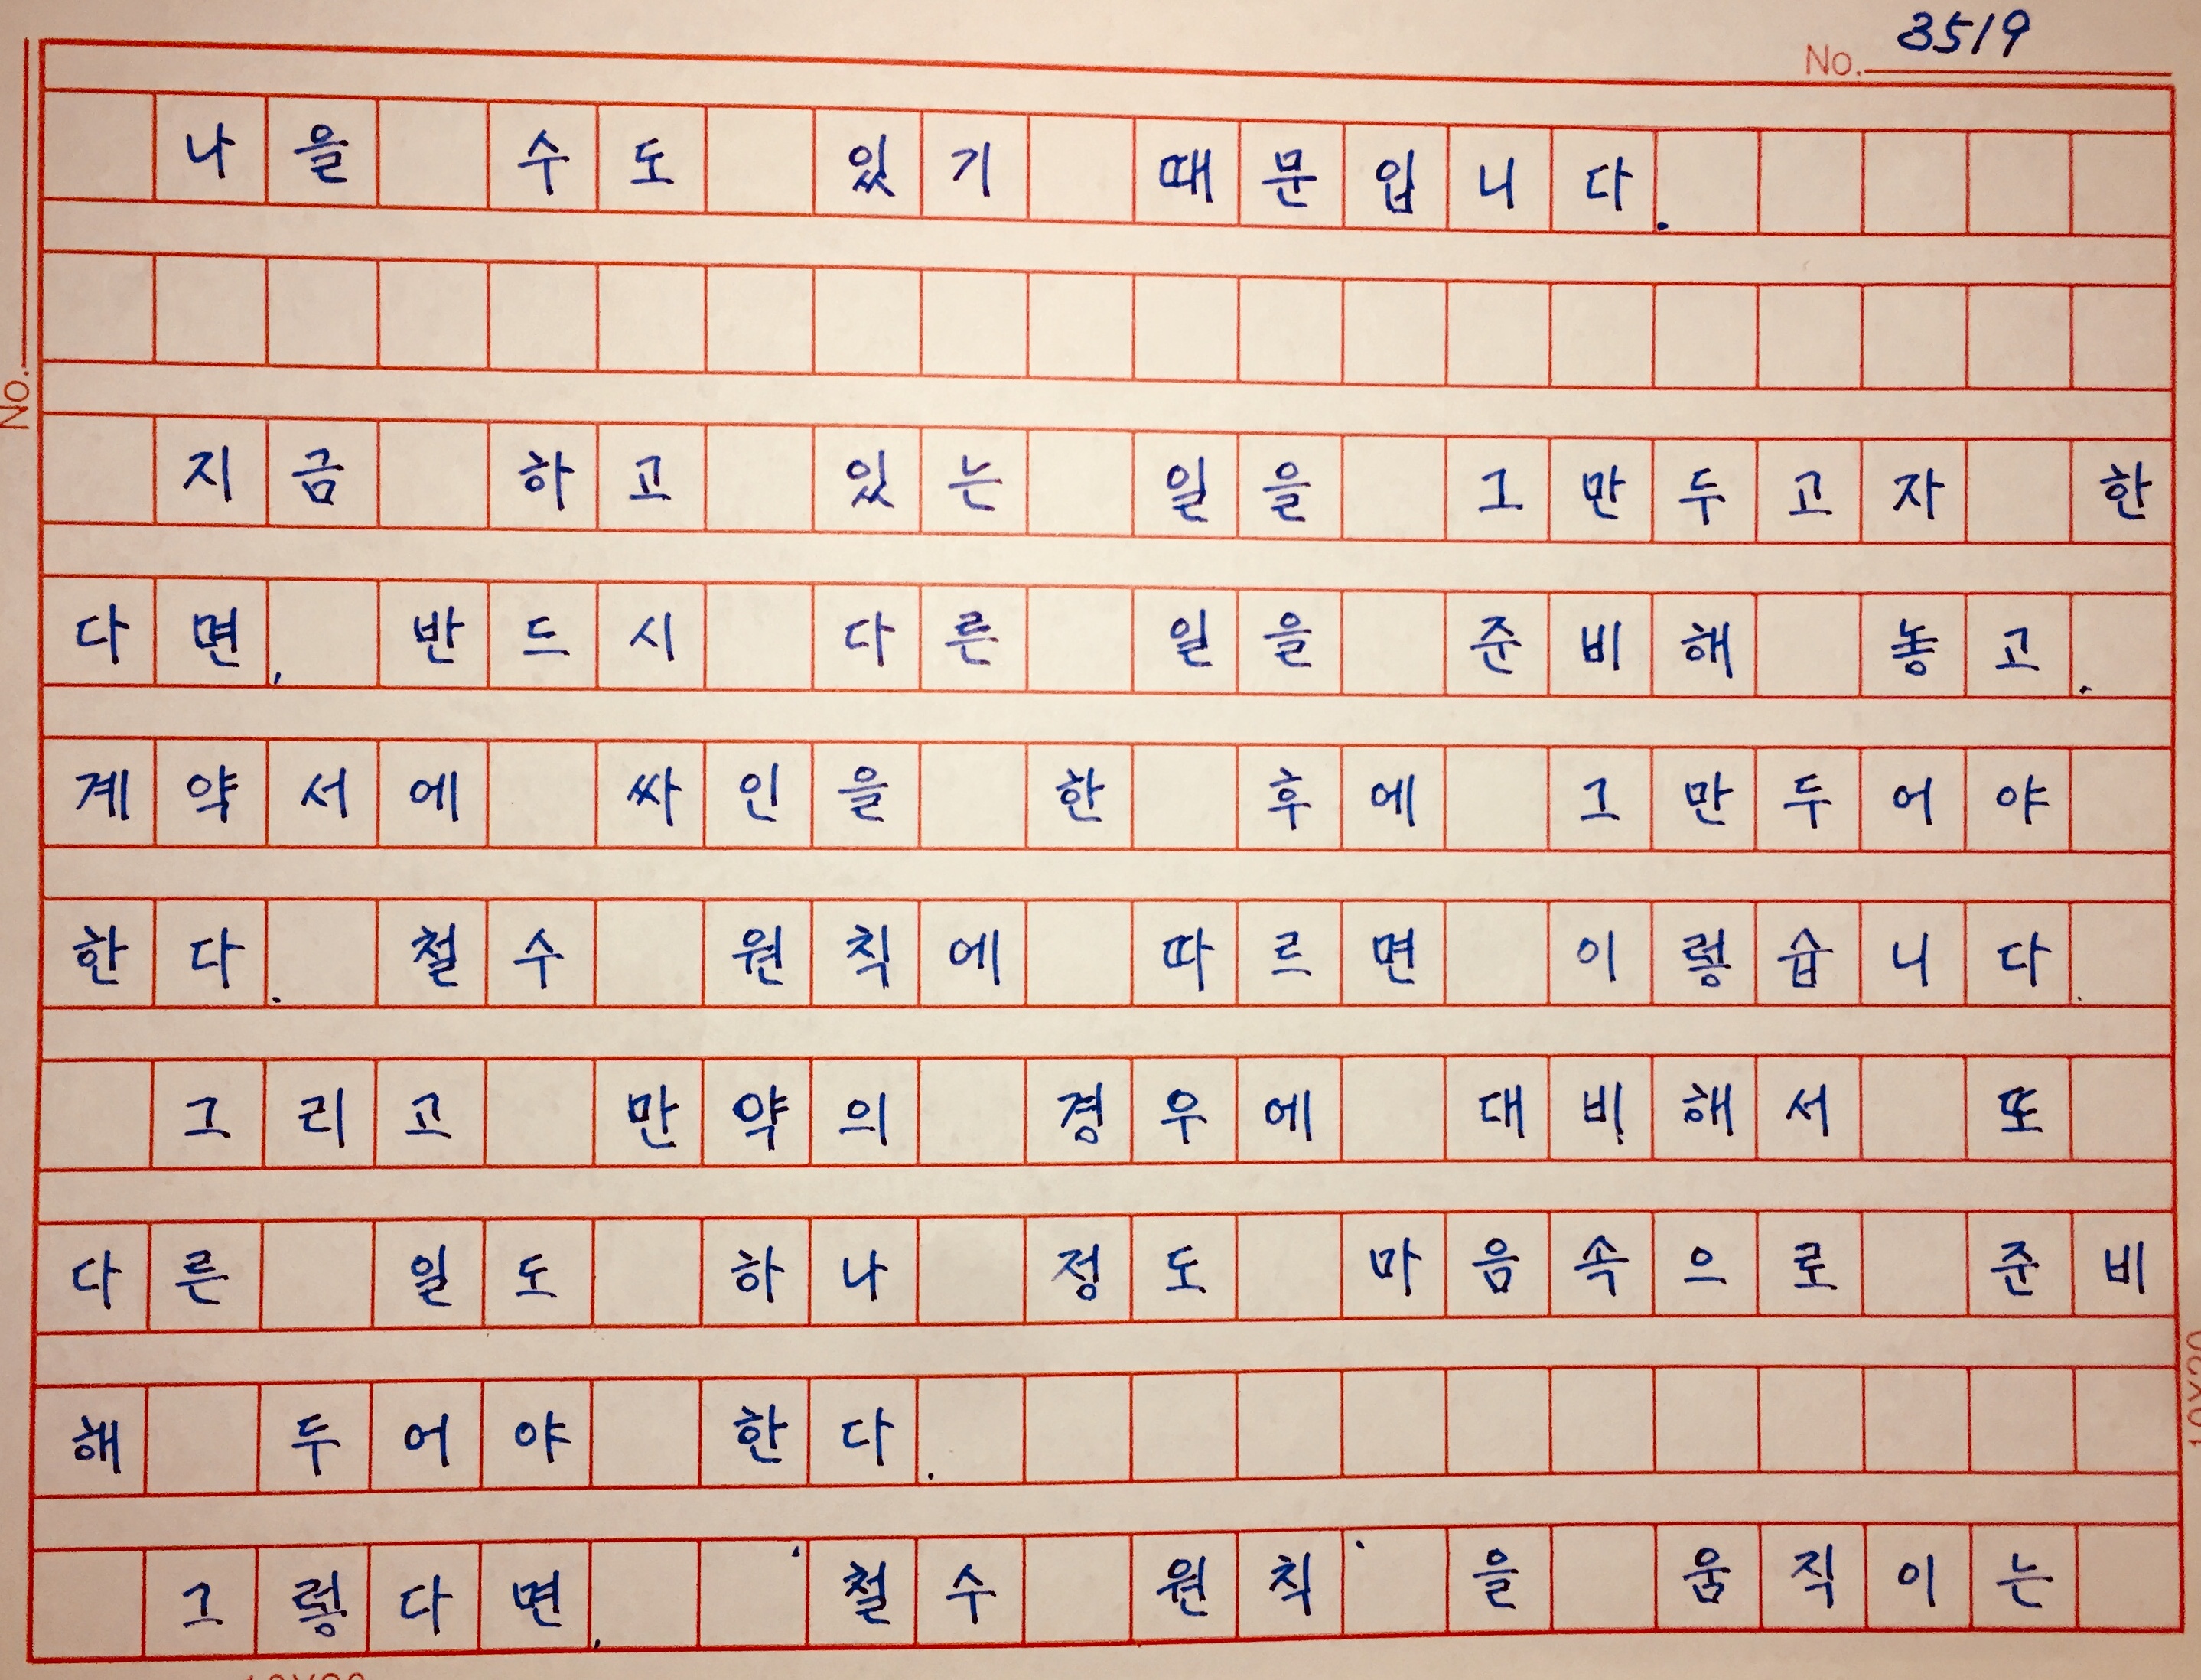 No. 3519
나을 수도 있기 때문입니다.
No.
지금 하고 있는 일을 그만두고자 한
다면, 반드시 다른 일을 준비해 놓고.
계약서에 싸인을 한 후에 그만두어야
한다. 철수 원칙에 따르면 이렇습니다.
그리고 만약의 경우에 대비해서 또
다른 일도 하나 정도 마음속으로 준비
해 두어야 한다.
그렇다면, '철수 원칙'을 움직이는